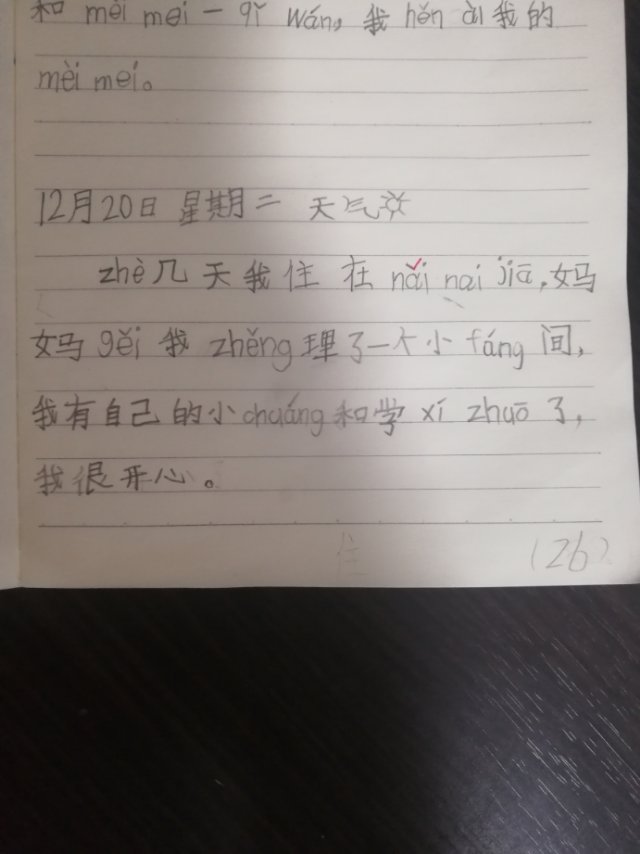 和 mèi mei 一 qǐ wán，我 hěn ài 我的
mèi mei。
12月20日 星期二 天气☀
zhè 几天我住在 nǎi nai jiā，妈
妈 gěi 我 zhěng 理了一个小 fáng 间，
我有自己的小 chuáng 和学 xí zhuō 了，
我很开心。
住
(26)